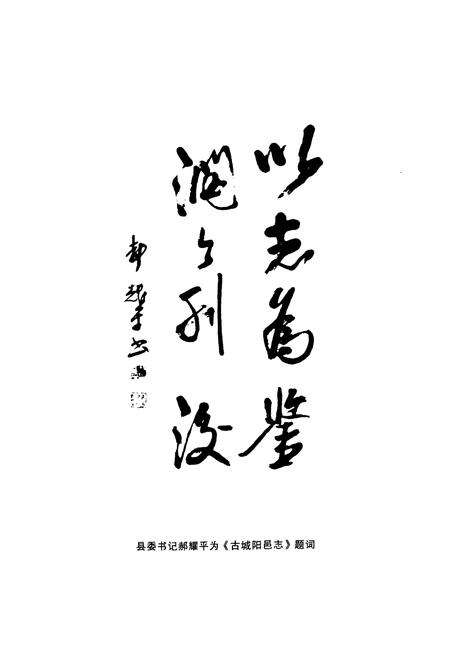 以志為鉴
今利後
郝耀平书
县委书记郝耀平为《古城阳邑志》题词